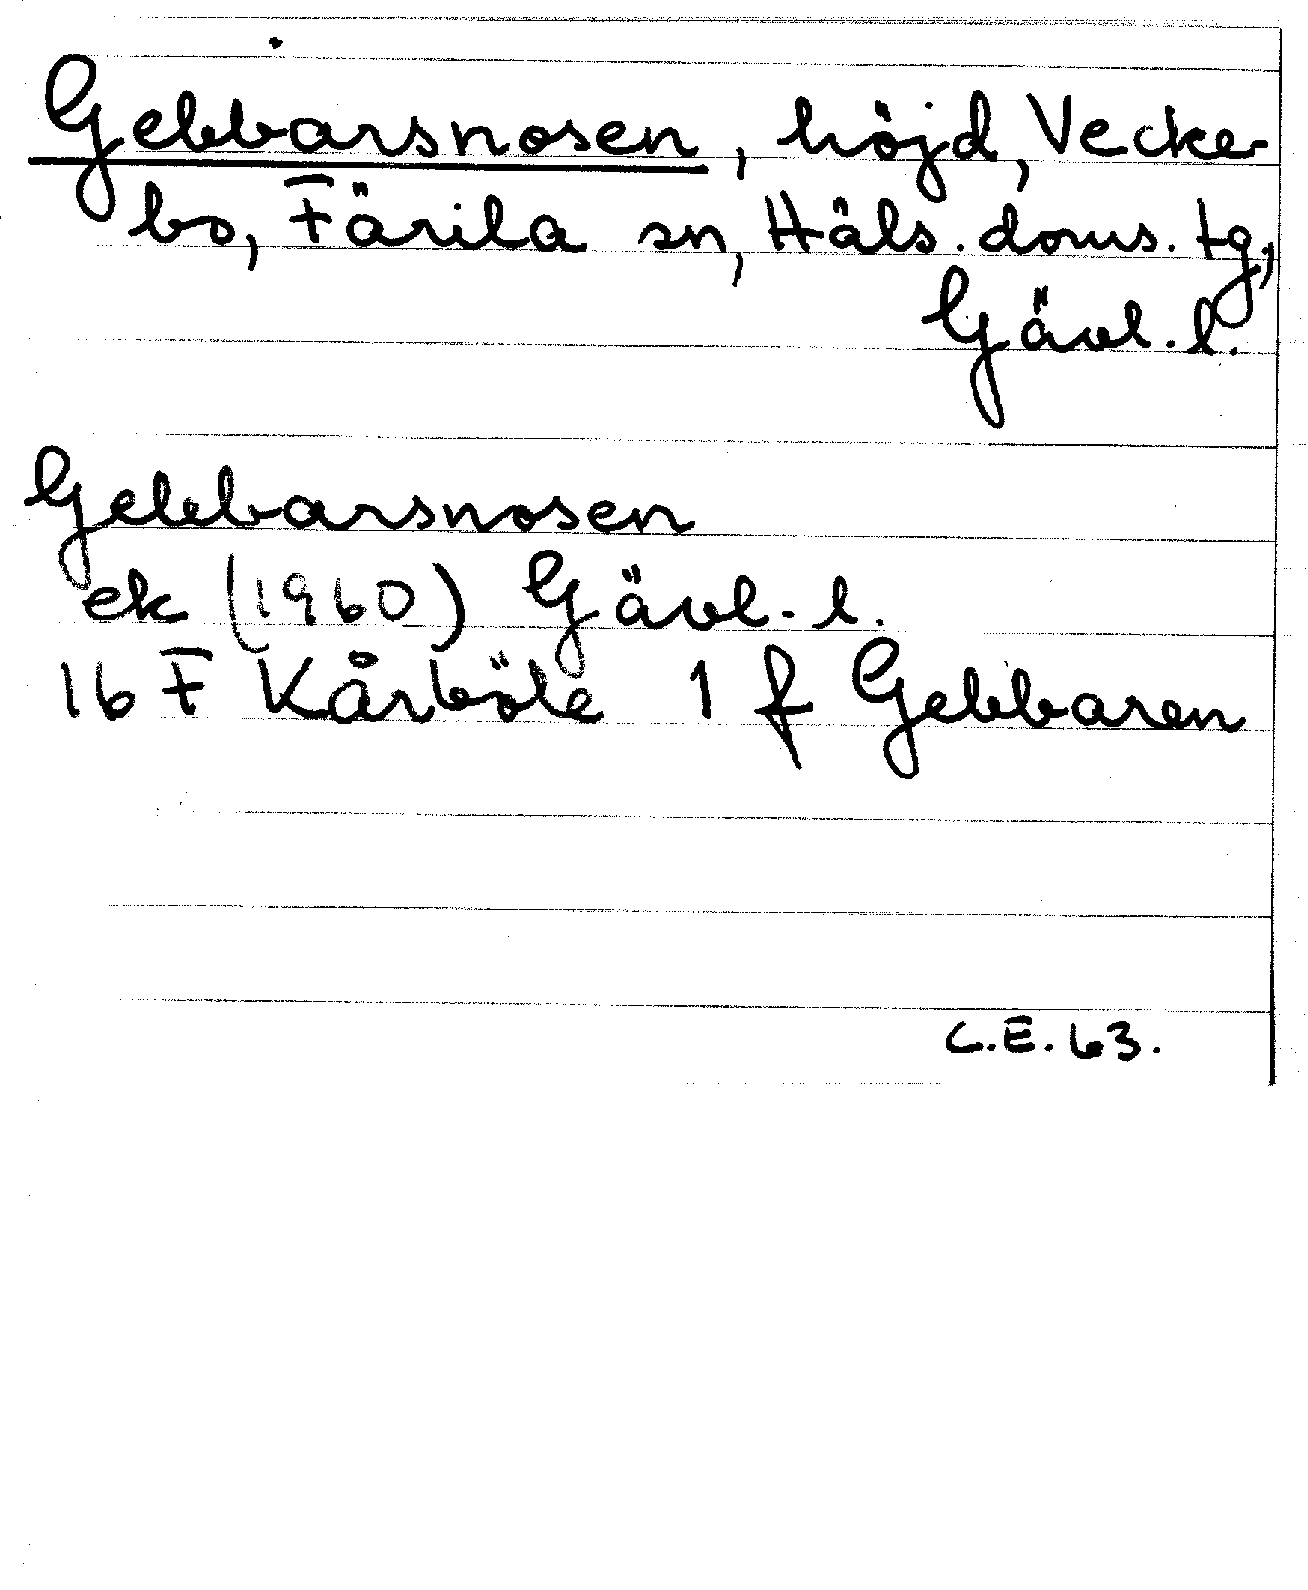 Gebbarsnosen, höjd, Vecke-
bo, Färila sn, Häls. doms. tg,
Gävl. l.
Gebbarsnosen
ek (1960) Gävl. l.
16 F Kårböle 1 f Gebbaren
C.E. 63.